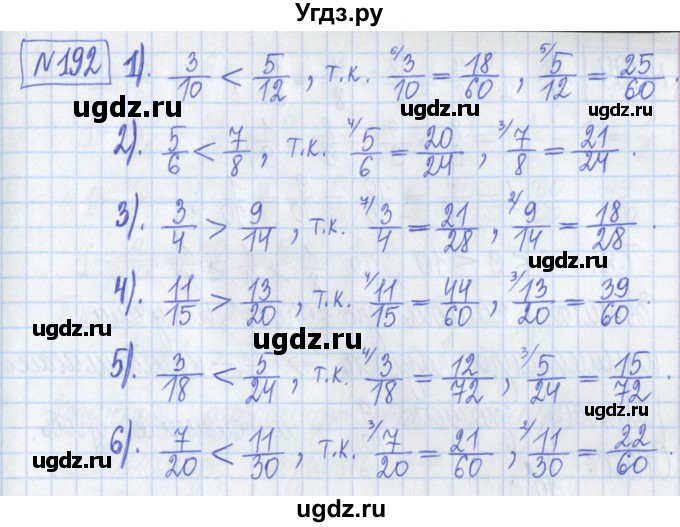 Угдз.ру
№192 1). 3/10 < 5/12, т.к. ⁶⁾3/10 = 18/60, ⁵⁾5/12 = 25/60.
ugdz.ru ugdz.ru ugdz.ru
2). 5/6 < 7/8, т.к. ⁴⁾5/6 = 20/24, ³⁾7/8 = 21/24.
3). 3/4 > 9/14, т.к. ⁷⁾3/4 = 21/28, ²⁾9/14 = 18/28.
ugdz.ru ugdz.ru
4). 11/15 > 13/20, т.к. ⁴⁾11/15 = 44/60, ³⁾13/20 = 39/60.
ugdz.ru ugdz.ru ugdz.ru
5). 3/18 < 5/24, т.к. ⁴⁾3/18 = 12/72, ³⁾5/24 = 15/72.
ugdz.ru ugdz.ru
6). 7/20 < 11/30, т.к. ³⁾7/20 = 21/60, ²⁾11/30 = 22/60.
ugdz.ru ugdz.ru ugdz.ru